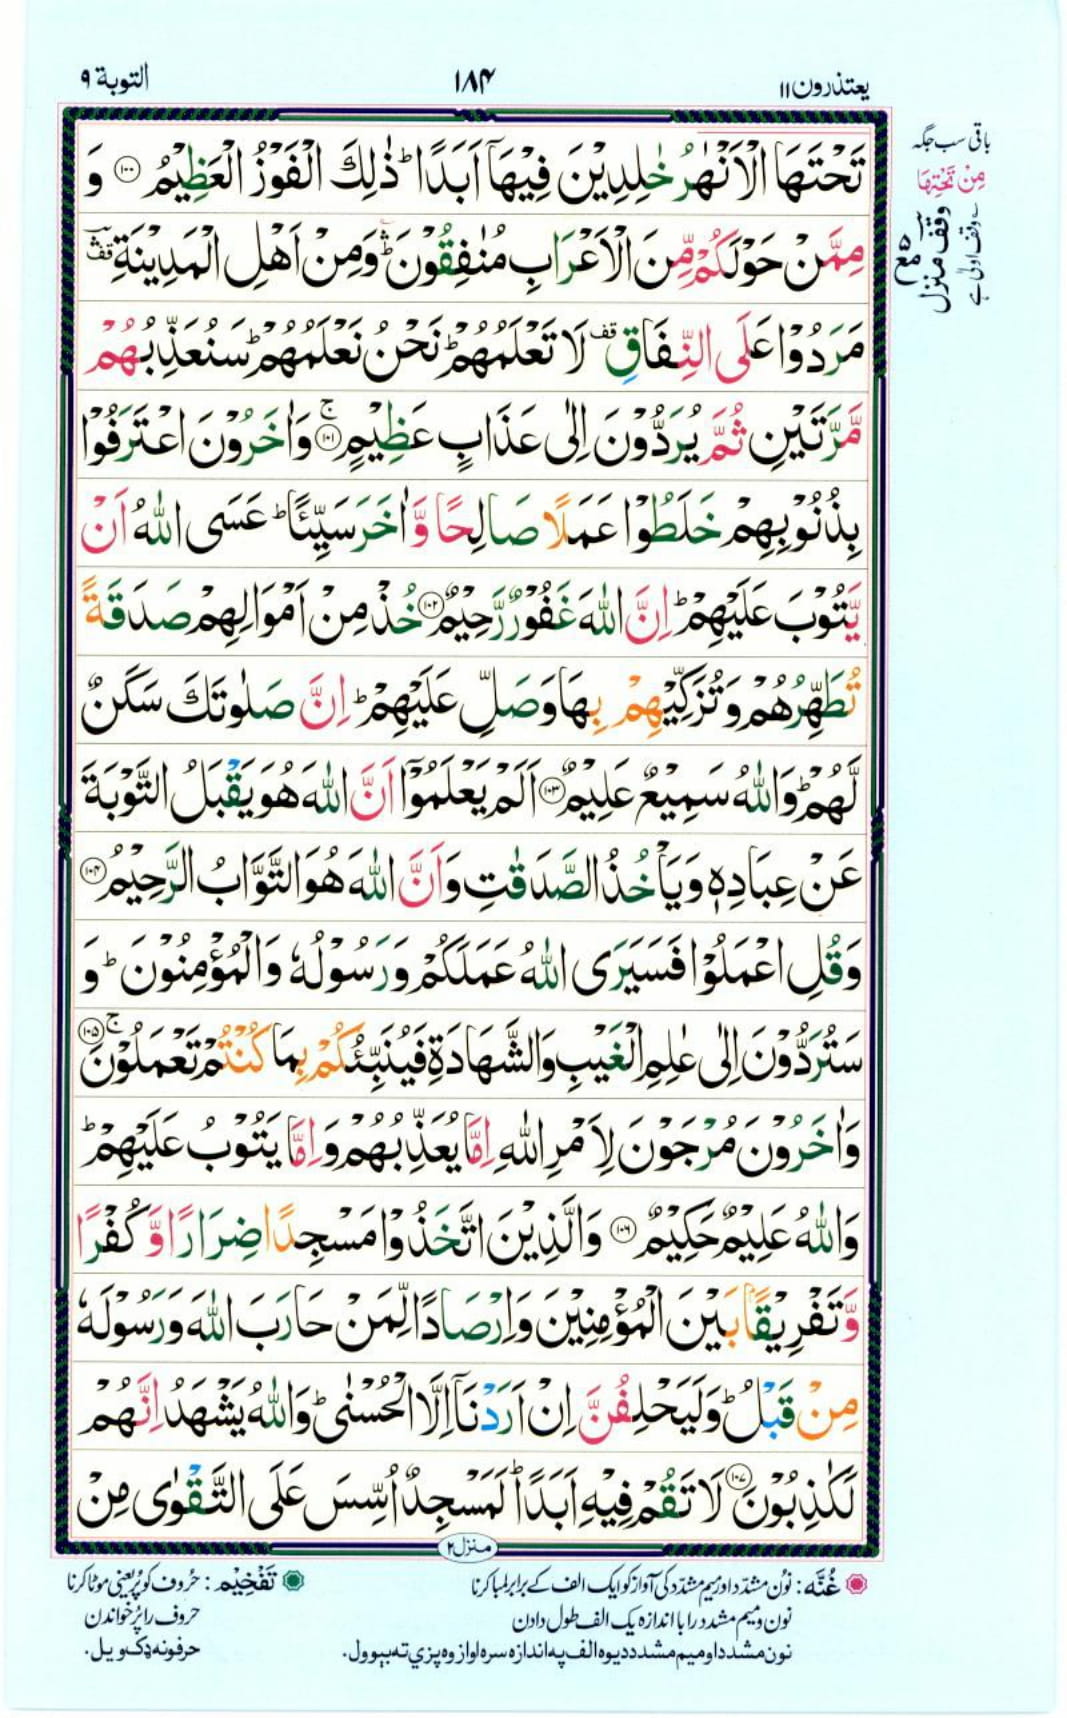 يعتذرون ۱۱
۱۸۴
التوبة ۹
تَحْتَهَا الْاَنْهٰرُ خٰلِدِيْنَ فِيْهَاۤ اَبَدًا ؕ ذٰلِكَ الْفَوْزُ الْعَظِيْمُ ۝۱۰۰ وَ
مِمَّنْ حَوْلَكُمْ مِّنَ الْاَعْرَابِ مُنٰفِقُوْنَ ۛؕ وَمِنْ اَهْلِ الْمَدِيْنَةِ ۛؔ قف
مَرَدُوْا عَلَى النِّفَاقِ قف لَا تَعْلَمُهُمْ ؕ نَحْنُ نَعْلَمُهُمْ ؕ سَنُعَذِّبُهُمْ
مَّرَّتَيْنِ ثُمَّ يُرَدُّوْنَ اِلٰى عَذَابٍ عَظِيْمٍ ۝۱۰۱ۚ وَاٰخَرُوْنَ اعْتَرَفُوْا
بِذُنُوْبِهِمْ خَلَطُوْا عَمَلًا صَالِحًا وَّاٰخَرَ سَيِّئًا ؕ عَسَى اللّٰهُ اَنْ
يَّتُوْبَ عَلَيْهِمْ ؕ اِنَّ اللّٰهَ غَفُوْرٌ رَّحِيْمٌ ۝۱۰۲ خُذْ مِنْ اَمْوَالِهِمْ صَدَقَةً
تُطَهِّرُهُمْ وَتُزَكِّيْهِمْ بِهَا وَصَلِّ عَلَيْهِمْ ؕ اِنَّ صَلٰوتَكَ سَكَنٌ
لَّهُمْ ؕ وَاللّٰهُ سَمِيْعٌ عَلِيْمٌ ۝۱۰۳ اَلَمْ يَعْلَمُوْۤا اَنَّ اللّٰهَ هُوَ يَقْبَلُ التَّوْبَةَ
عَنْ عِبَادِهٖ وَيَاْخُذُ الصَّدَقٰتِ وَاَنَّ اللّٰهَ هُوَ التَّوَّابُ الرَّحِيْمُ ۝۱۰۴
وَقُلِ اعْمَلُوْا فَسَيَرَى اللّٰهُ عَمَلَكُمْ وَرَسُوْلُهٗ وَالْمُؤْمِنُوْنَ ؕ وَ
سَتُرَدُّوْنَ اِلٰى عٰلِمِ الْغَيْبِ وَالشَّهَادَةِ فَيُنَبِّئُكُمْ بِمَا كُنْتُمْ تَعْمَلُوْنَ ۝۱۰۵ۚ
وَاٰخَرُوْنَ مُرْجَوْنَ لِاَمْرِ اللّٰهِ اِمَّا يُعَذِّبُهُمْ وَاِمَّا يَتُوْبُ عَلَيْهِمْ ؕ
وَاللّٰهُ عَلِيْمٌ حَكِيْمٌ ۝۱۰۶ وَالَّذِيْنَ اتَّخَذُوْا مَسْجِدًا ضِرَارًا وَّكُفْرًا
وَّتَفْرِيْقًۢا بَيْنَ الْمُؤْمِنِيْنَ وَاِرْصَادًا لِّمَنْ حَارَبَ اللّٰهَ وَرَسُوْلَهٗ
مِنْ قَبْلُ ؕ وَلَيَحْلِفُنَّ اِنْ اَرَدْنَاۤ اِلَّا الْحُسْنٰى ؕ وَاللّٰهُ يَشْهَدُ اِنَّهُمْ
لَكٰذِبُوْنَ ۝۱۰۷ لَا تَقُمْ فِيْهِ اَبَدًا ؕ لَمَسْجِدٌ اُسِّسَ عَلَى التَّقْوٰى مِنْ
باقی سب جگہ
مِنْ تَحْتِهَا
وقف منزل
وقف اولیٰ ہے
مع
منزل ۲
غُنَّه: نون مشدّد اور میم مشدّد کی آواز کو ایک الف کے برابر لمبا کرنا
نون و میم مشدد را با اندازه یک الف طول دادن
نون مشدد او ميم مشدد ديوه الف په اندازه سره اواز وه پزې ته بېوول.
تَفْخِيْم: حُروف کو پُر یعنی موٹا کرنا
حروف را پُر خواندن
حرفونه ډک ويل.